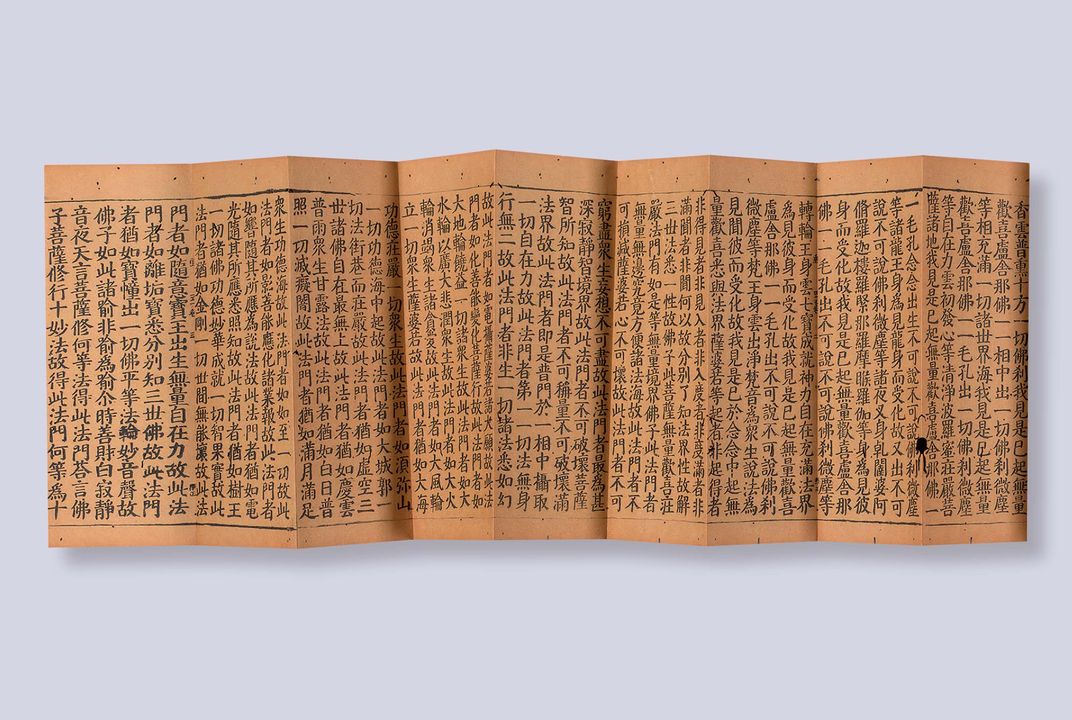 香雲普熏十方一切佛刹我見是已起無量
歡喜盧舍那佛一一相中出一切佛刹微塵
等相充滿一切諸世界海我見是已起無量
歡喜盧舍那佛一一毛孔出一切佛刹微塵
等身自在力雲初發心等清淨波羅蜜嚴菩
薩諸地我見是已起無量歡喜盧舍那佛一
一毛孔念念出生不可說不可說佛刹微塵
等諸龍為見龍身而受化故又出不可
說不可說佛刹微塵等諸夜叉身乾闥婆阿
脩羅迦樓羅緊那羅摩睺羅伽等身為見彼
身而受化故我見是已起無量歡喜盧舍那
佛一一毛孔出不可說不可說佛刹微塵等
轉輪王身雲七寶成就神力自在充滿法界
為見彼身而受化故我見是已起無量歡喜
盧舍那佛一一毛孔出不可說不可說佛刹
微塵等梵王身雲出淨梵音為說法故
見聞彼而受化故我見是已於念念中起無
量歡喜悉與法界薩婆若等起者非起得者
非得見者非見入者非入度者非度滿者非
滿聞者非聞何以故分別了知法界性故解
三世法悉一性故佛子此菩薩無量歡喜莊
嚴法門有如是等無量境界佛子此法門者
無量無邊究竟方便諸法海故此法門者不
可損減薩婆若心不可壞故此法門者不可
窮盡衆生妄想不可盡故此法門者最為甚
深寂靜智境界故此法門者不可破壞菩薩
智所知故此法門者不可稱量不可破壞滿
法界故此法門者即是普門於一相中攝取
一切自在力故此法門者第一一切法無身
行無二故此法門者非生一切諸法悉如幻
故此法門者如電攝薩婆若諸大願故此法
門者如化善能變化菩薩行故此法門者如
大地輪饒益一切諸衆生故此法門者如
水輪以廣大悲潤衆生故此法門者如大火
輪消竭衆生諸貪愛故此法門者如大風輪
立一切衆生薩婆若故此法門者如大海
功德莊嚴一切衆生故此法門者如須弥山
一切功德海中起故此法門者如大城郭一
切法街巷而莊嚴故此法門者猶如虛空三
世諸佛自在最無上故此法門者猶如慶雲
普雨衆生甘露法故此法門者猶如白日普
照一切滅癡闇故此法門者猶如滿月滿足
衆生功德海故此法門者如如至一切故此
法門者如影善能應化諸業報故此法門者
如響隨其所應為說法故此法門者猶如電
光隨其所應悉照知故此法門者猶如樹王
一切諸佛功德妙華成就一切智果實故此
法門者猶如金剛一切世間無能壞故此法
門者如隨意寶王出生無量自在力故此法
門者如離垢寶悉分別知三世佛故此法門
者猶如寶幢出一切佛平等法輪妙音聲故
佛子如此諸喻非喻為喻尒時善財白寂靜
音夜天言菩薩修何等法得此法門荅言佛
子菩薩修行十妙法故得此法門何等為十